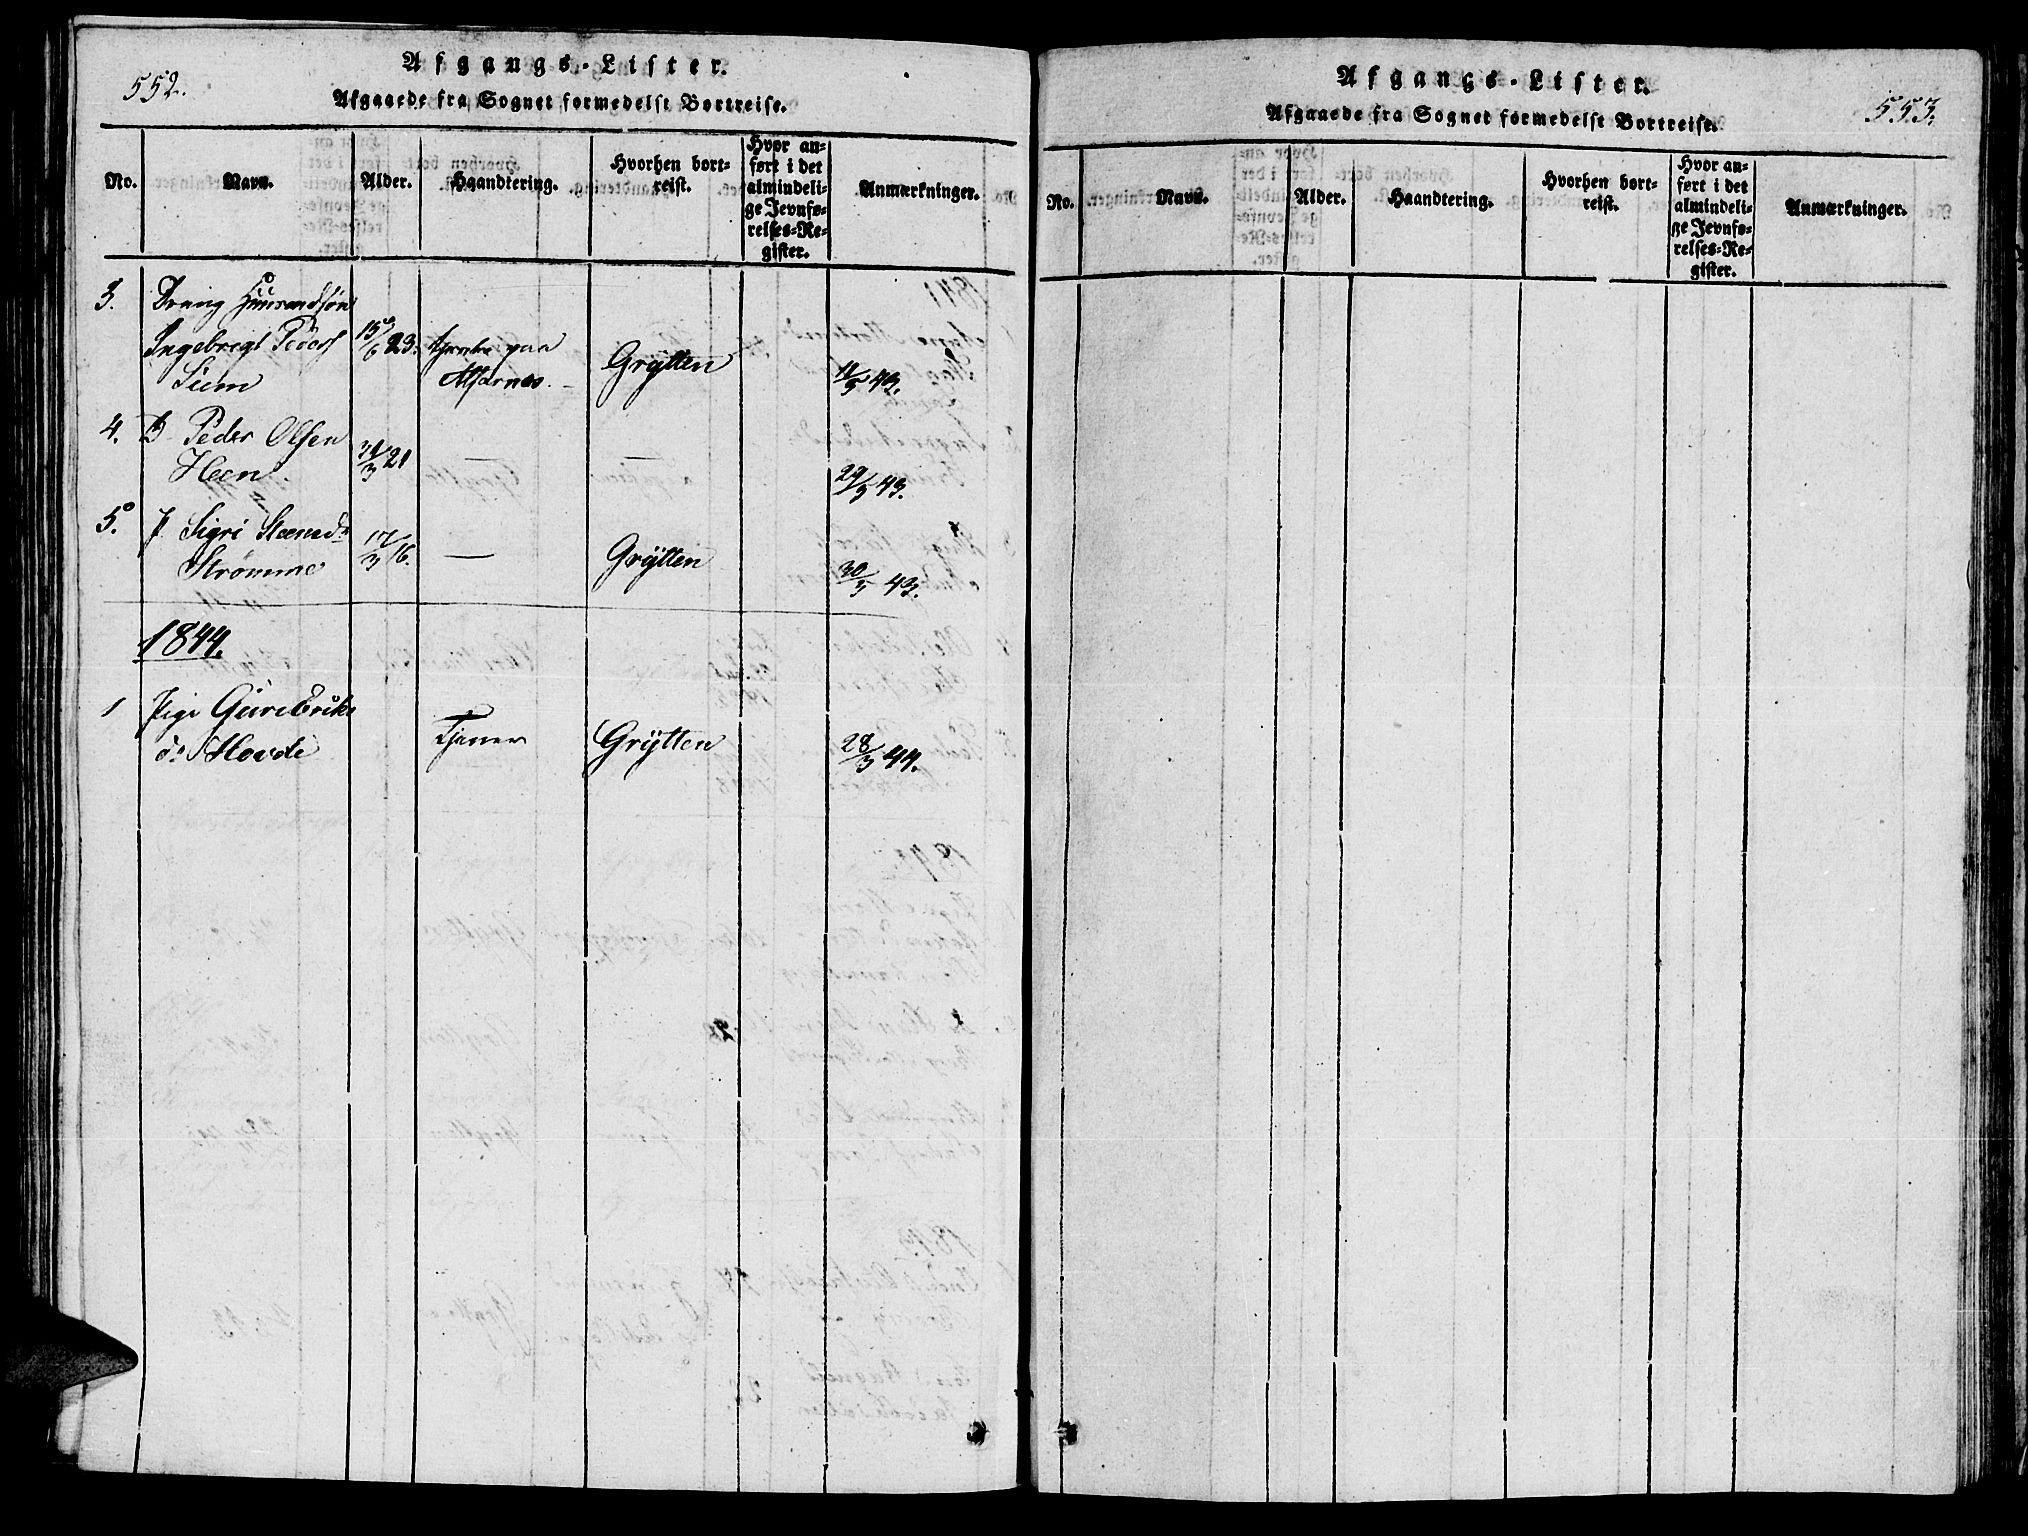 552.
Afgangs-Lister.
Afgaaede fra Sognet formedelst Bortreise.
No.
Navn.
Alder.
Haandtering.
Hvorhen bort-
reist.
Hvor an-
ført i det
almindeli-
ge Jevnfø-
relses-Re-
gister.
Anmærkninger.
3. Dreng
Ingebrigt Peders
Siem
23.
Grÿtten
11/5 43.
4. D. Peder Olsen
Heen.
21
—
—
29/5 43.
5. P. Sigri Steensd.
Strømme
17/3 16.
—
Grÿtten
30/5 43.
1844.
1 Pige Guri Eriks
d. Hovde
Tjener
Grÿtten
28/3 44.
Afgangs-Lister.
553.
Afgaaede fra Sognet formedelst Bortreise.
No.
Navn.
Alder.
Haandtering.
Hvorhen bort-
reist.
Hvor an-
ført i det
almindeli-
ge Jevnfø-
relses-Re-
gister.
Anmærkninger.